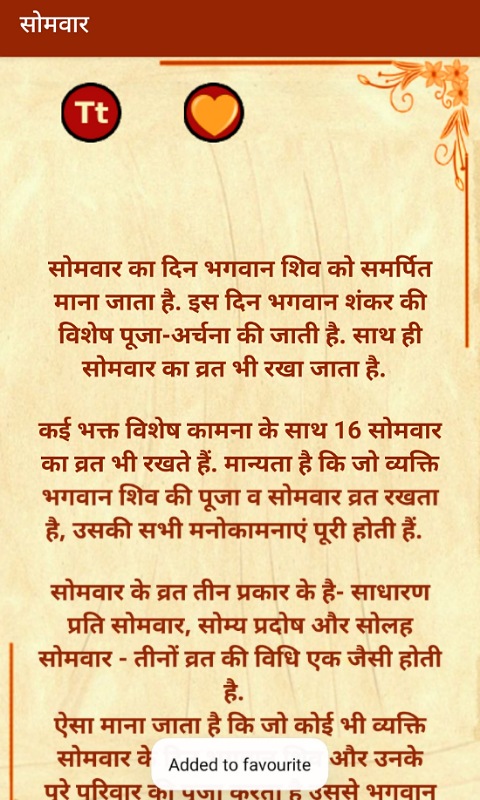 सोमवार
Tt
सोमवार का दिन भगवान शिव को समर्पित
माना जाता है. इस दिन भगवान शंकर की
विशेष पूजा-अर्चना की जाती है. साथ ही
सोमवार का व्रत भी रखा जाता है.
कई भक्त विशेष कामना के साथ 16 सोमवार
का व्रत भी रखते हैं. मान्यता है कि जो व्यक्ति
भगवान शिव की पूजा व सोमवार व्रत रखता
है, उसकी सभी मनोकामनाएं पूरी होती हैं.
सोमवार के व्रत तीन प्रकार के है- साधारण
प्रति सोमवार, सोम्य प्रदोष और सोलह
सोमवार - तीनों व्रत की विधि एक जैसी होती
है.
ऐसा माना जाता है कि जो कोई भी व्यक्ति
सोमवार के और उनके
Added to favourite
पूरे परिवार की पूजा करता है उससे भगवान